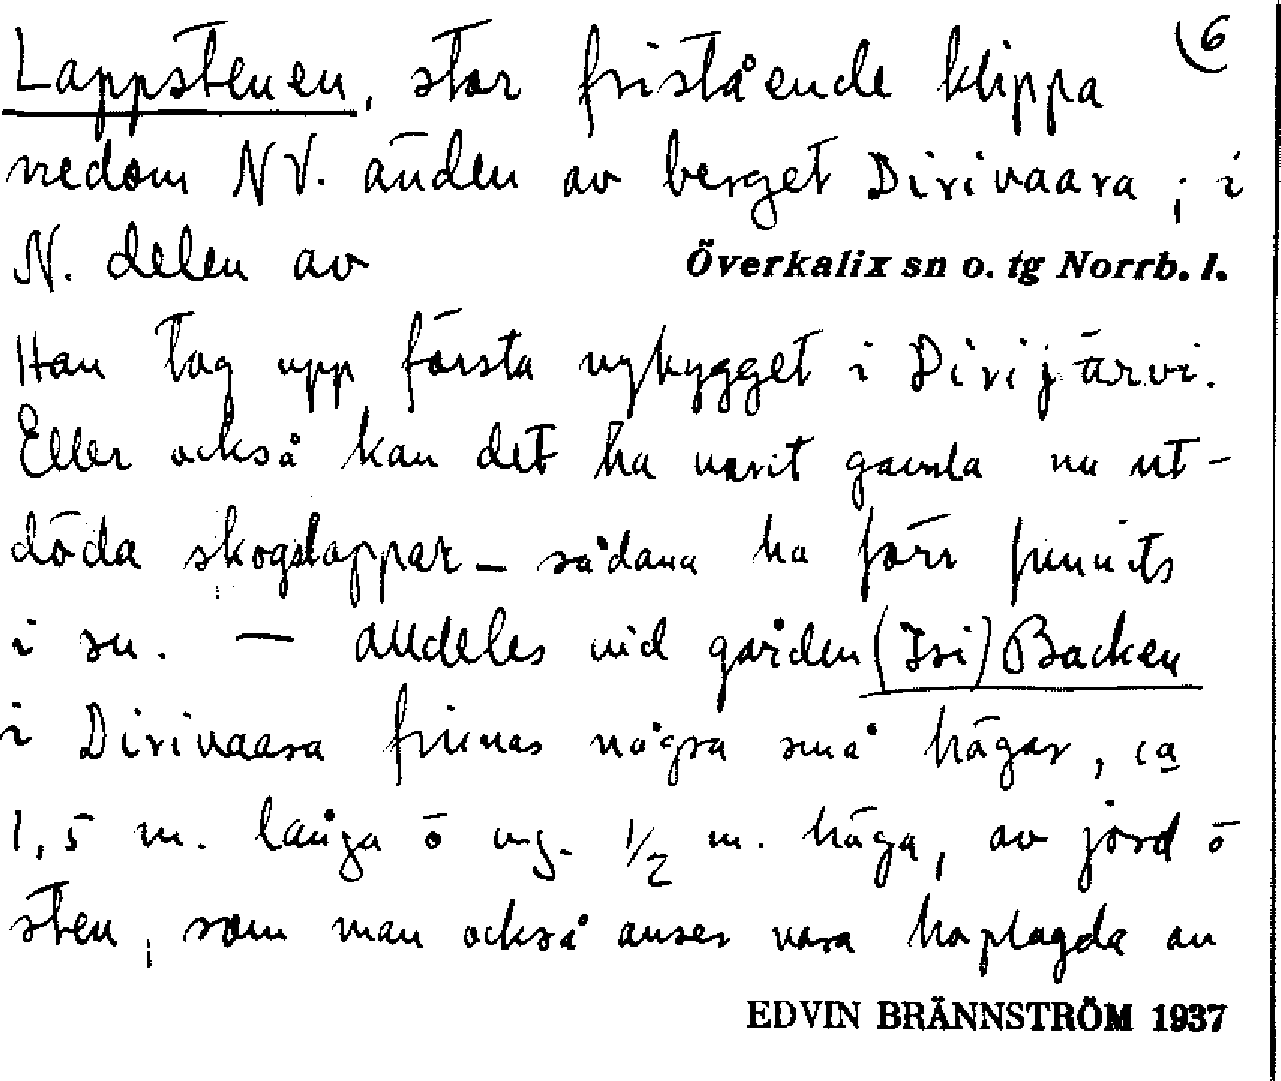 6
Lappstenen, stor fristående klippa
nedom NV. änden av berget Dirivaara; i
N. delen av Överkalix sn o. tg Norrb. l.
Han tog upp första nybygget i Dirijärvi.
Eller också kan det ha varit gamla nu ut-
döda skogslappar – sådana ha förr funnits
i sn. — Alldeles vid gården (Isi) Backen
i Dirivaara finnas några små högar, ca
1,5 m. långa o ung. 1/2 m. höga, av jord o
sten, som man också anser vara hoplagda av
EDVIN BRÄNNSTRÖM 1937